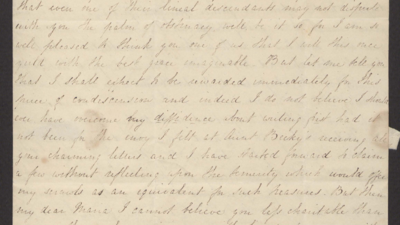 that even one of their lineal descendants may not dispute
with you the palm of obstinacy, well, be it so for I am so
well pleased to think you one of us that I ask this one
with the best grace imaginable. But let me tell you
that I shall expect to be rewarded immediately for this
piece of condescension and indeed I do not believe I should
ever have overcome my diffidence about writing first had it
not been for the envy I felt at Aunt Becky's receiving all
your charming letters and I have rushed forward to claim
a few without reflecting upon the temerity which would offer
my scrawls as an equivalent for such treasures. But then
my dear Maria I cannot believe you less charitable than